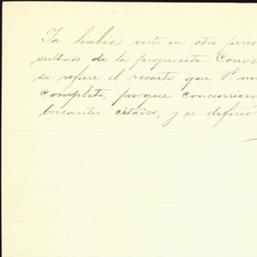 Ya habia visto en otro perió
sultado de la propuesta Conve
se refiere el recorte que Vd. me
completo, porque concurriero
tricantes citados, y se defirió